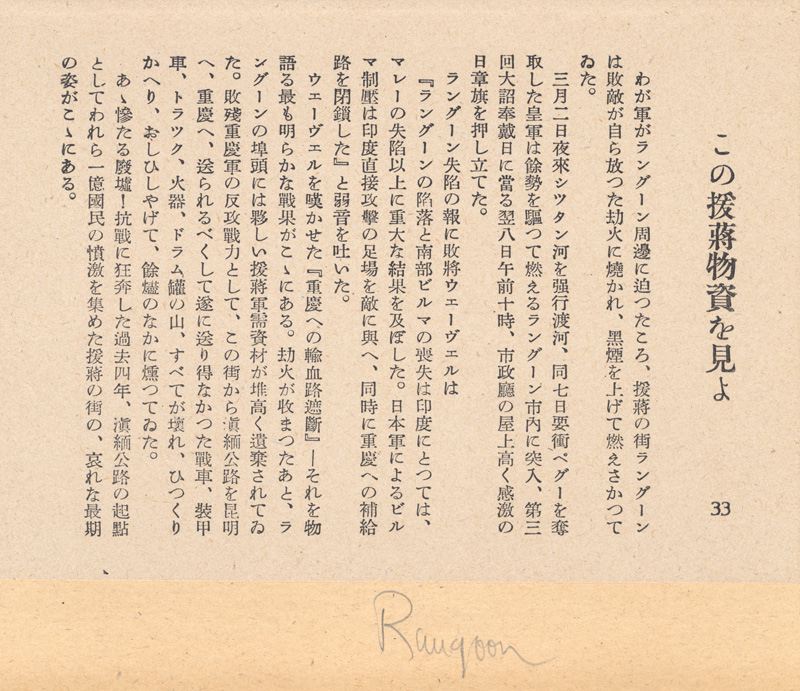 この援蔣物資を見よ
33
わが軍がラングーン周邊に迫つたころ、援蔣の街ラングーン
は敗敵が自ら放つた劫火に燒かれ、黑煙を上げて燃えさかつて
ゐた。
三月二日夜來シツタン河を强行渡河、同七日要衝ペグーを奪
取した皇軍は餘勢を驅つて燃えるラングーン市內に突入、第三
回大詔奉戴日に當る翌八日午前十時、市政廳の屋上高く感激の
日章旗を押し立てた。
ラングーン失陷の報に敗將ウエーヴエルは
『ラングーンの陷落と南部ビルマの喪失は印度にとつては、
マレーの失陷以上に重大な結果を及ぼした。日本軍によるビル
マ制壓は印度直接攻擊の足場を敵に與へ、同時に重慶への補給
路を閉鎖した』と弱音を吐いた。
ウエーヴエルを嘆かせた『重慶への輸血路遮斷』―それを物
語る最も明らかな戰果がこゝにある。劫火が收まつたあと、ラ
ングーンの埠頭には夥しい援蔣軍需資材が堆高く遺棄されてゐ
た。敗殘重慶軍の反攻戰力として、この街から滇緬公路を昆明
へ、重慶へ、送られるべくして遂に送り得なかつた戰車、裝甲
車、トラツク、火器、ドラム罐の山、すべてが壞れ、ひつくり
かへり、おしひしやげて、餘燼のなかに燻つてゐた。
あゝ慘たる廢墟！抗戰に狂奔した過去四年、滇緬公路の起點
としてわれら一億國民の憤激を集めた援蔣の街の、哀れな最期
の姿がこゝにある。
Rangoon